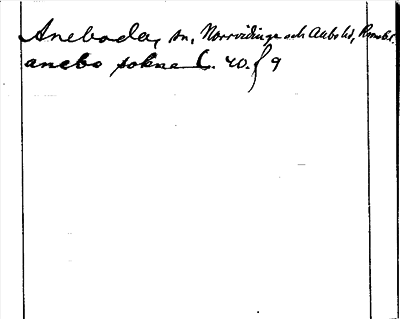 Aneboda, sn, Norrvidinge och Allbo hd, Kronob l.
anebo sokna C. 40. f 9